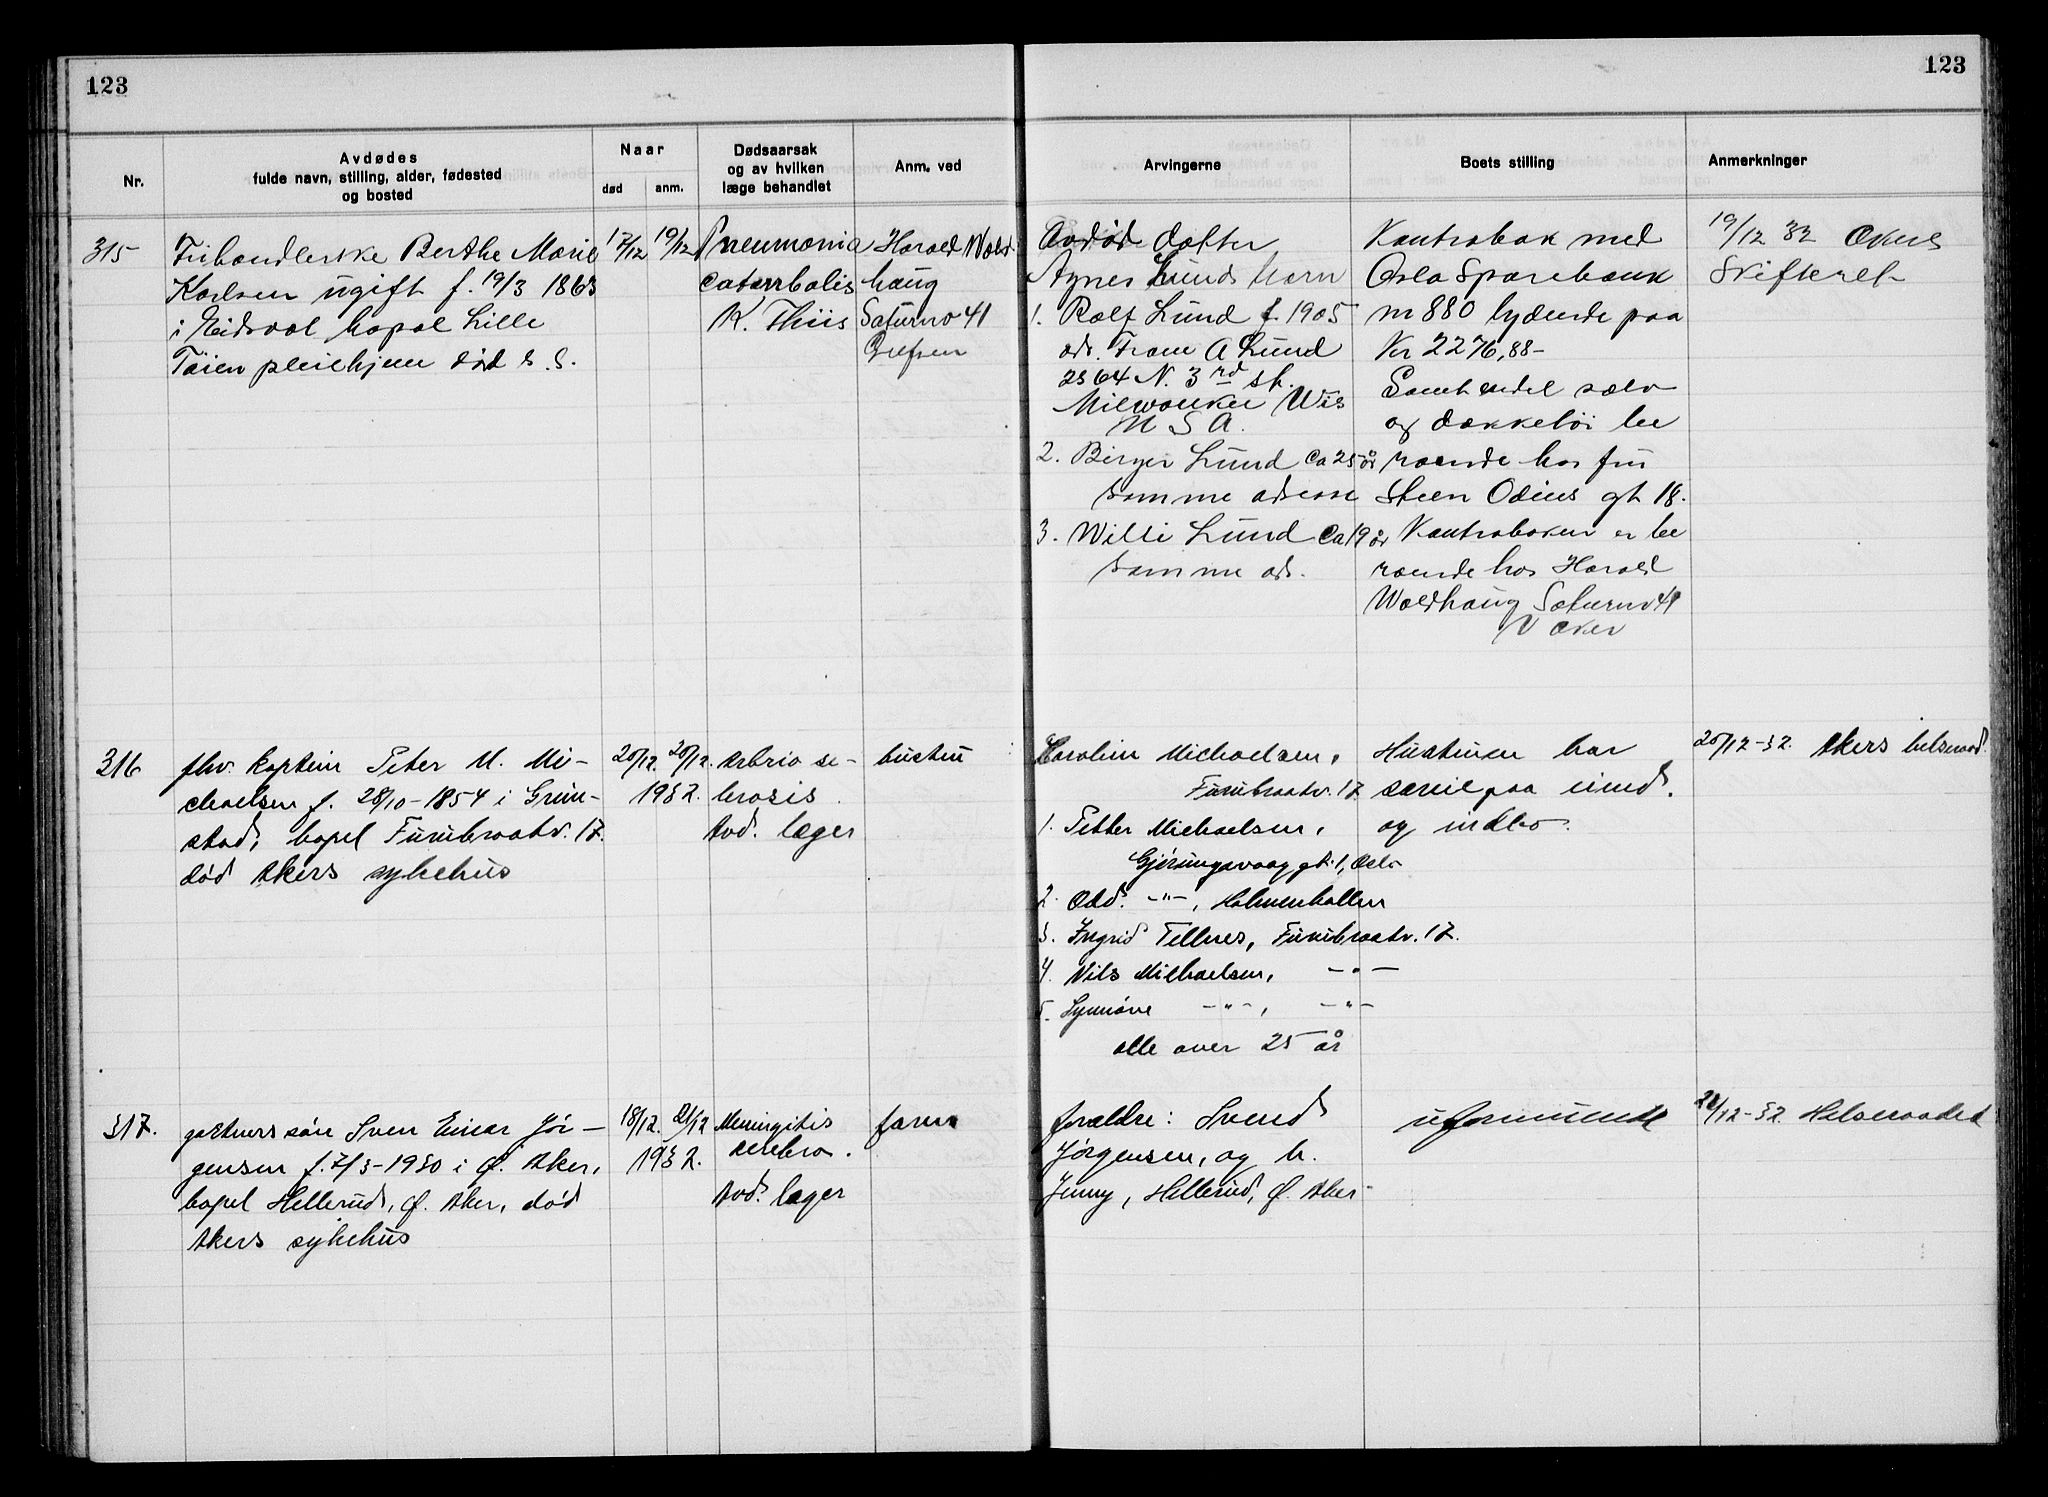 123
123
Nr.
Avdødes
fulde navn, stilling, alder, fødested
og bosted
Naar
død
anm.
Dødsaarsak
og av hvilken
læge behandlet
Anm. ved
Arvingerne
Boets stilling
Anmerkninger
315
Frihandlerske Berthe Marie
Karlsen ugift f. 19/3 1863
i Eidsvol bopæl Lille
Töien pleiehjem död s. S.
17/12
19/12
Pneumonia
catarrhalis
K. Thiis
Harald Wold
haug
Saturnv 41
Grefsen
Avdöde datter
Agnes Lunds barn
1. Rolf Lund f. 1905
adr. Fram A Lund
2564 N. 3rd st.
Milwaukee Wis
U S A.
2. Birger Lund ca 25 år
samme adresse
3. Willi Lund ca 19 år
samme adr.
Kontrabok med
Oslo Sparebank
nr 880 lydende paa
Kr 2276,88-
Samt endel sölv
og dekketöi be
roende hos fru
Steen Odins gt 18.
Kontraboken er be
roende hos Harald
Woldhaug Saturnv 41
V Aker
19/12 32 Akers
Skifteret
316
fhv. kaptein Peter M. Mi-
chaelsen f. 28/10-1854 i Grim-
stad, bopel Furubraatv. 17.
død Akers sykehus
20/12.
20/12.
1932.
Arterio sc-
lerosis
Avd. læger
hustru
Karoline Michaelsen,
Furubraatv. 17
1. Petter Michaelsen,
Gjörungsvaag gt. 1, Oslo
2. Odd. -"-, Holmenkollen
3. Ingrid Tellnes, Furubraatv. 17.
4. Nils Michaelsen, -"-
5. Synnöve -"-, -"-
alle over 25 år
Hustruen har
sævie paa uind.
og indbo.
20/12-32. Akers helseraad.
317.
gartners sön Sven Einar Jör-
gensen f. 7/3-1930 i Ø. Aker,
bopel Hellerud, Ø. Aker, død
Akers sykehus
18/12.
21/12
1932.
Meningitis
cerebro.
Avd. læger
faren
forældre: Svend
Jörgensen, og h.
Jenny, Hellerud, Ø. Aker
uformuende
21/12-32. Helseraadet